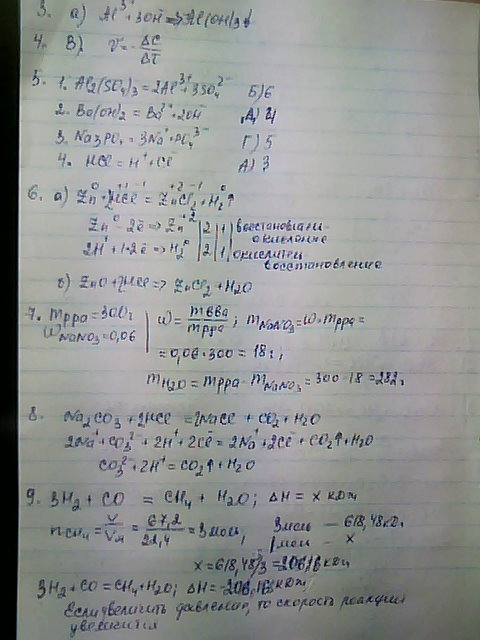 3. а) Al³⁺ + 3OH⁻ => Al(OH)₃↓
4. В) V = - ΔC/ΔT
5. 1. Al₂(SO₄)₃ = 2Al³⁺ + 3SO₄²⁻ Б) 6
2. Ba(OH)₂ = Ba²⁺ + 2OH⁻ Д) 4
3. Na₃PO₄ = 3Na⁺ + PO₄³⁻ Г) 5
4. HCl = H⁺ + Cl⁻ А) 3
6. а) Zn⁰ + 2H⁺¹Cl⁻¹ = Zn⁺²Cl₂⁻¹ + H₂⁰↑
Zn⁰ - 2ē => Zn⁺² | 2 | 1 | восстановит.
окисление
2H⁺ + 2ē => H₂⁰ | 2 | 1 | окислитель
восстановление
ZnO + 2HCl => ZnCl₂ + H₂O
7. mр-ра = 300г
ω NaNO₃ = 0,06
ω = mв-ва/mр-ра; mNaNO₃ = ω · mр-ра =
= 0,06 · 300 = 18г;
mH₂O = mр-ра - mNaNO₃ = 300 - 18 = 282г
8. Na₂CO₃ + 2HCl = 2NaCl + CO₂ + H₂O
2Na⁺ + CO₃²⁻ + 2H⁺ + 2Cl⁻ = 2Na⁺ + 2Cl⁻ + CO₂↑ + H₂O
CO₃²⁻ + 2H⁺ = CO₂↑ + H₂O
9. 3H₂ + CO = CH₄ + H₂O; ΔH = x кДж
nCH₄ = V/Vм = 67,2/22,4 = 3 моль, 3 моль — 618,48 кДж
1 моль — x
x = 618,48/3 = 206,16 кДж
3H₂ + CO = CH₄ + H₂O; ΔH = -206,16 кДж
Если увеличить давление, то скорость реакции
увеличится